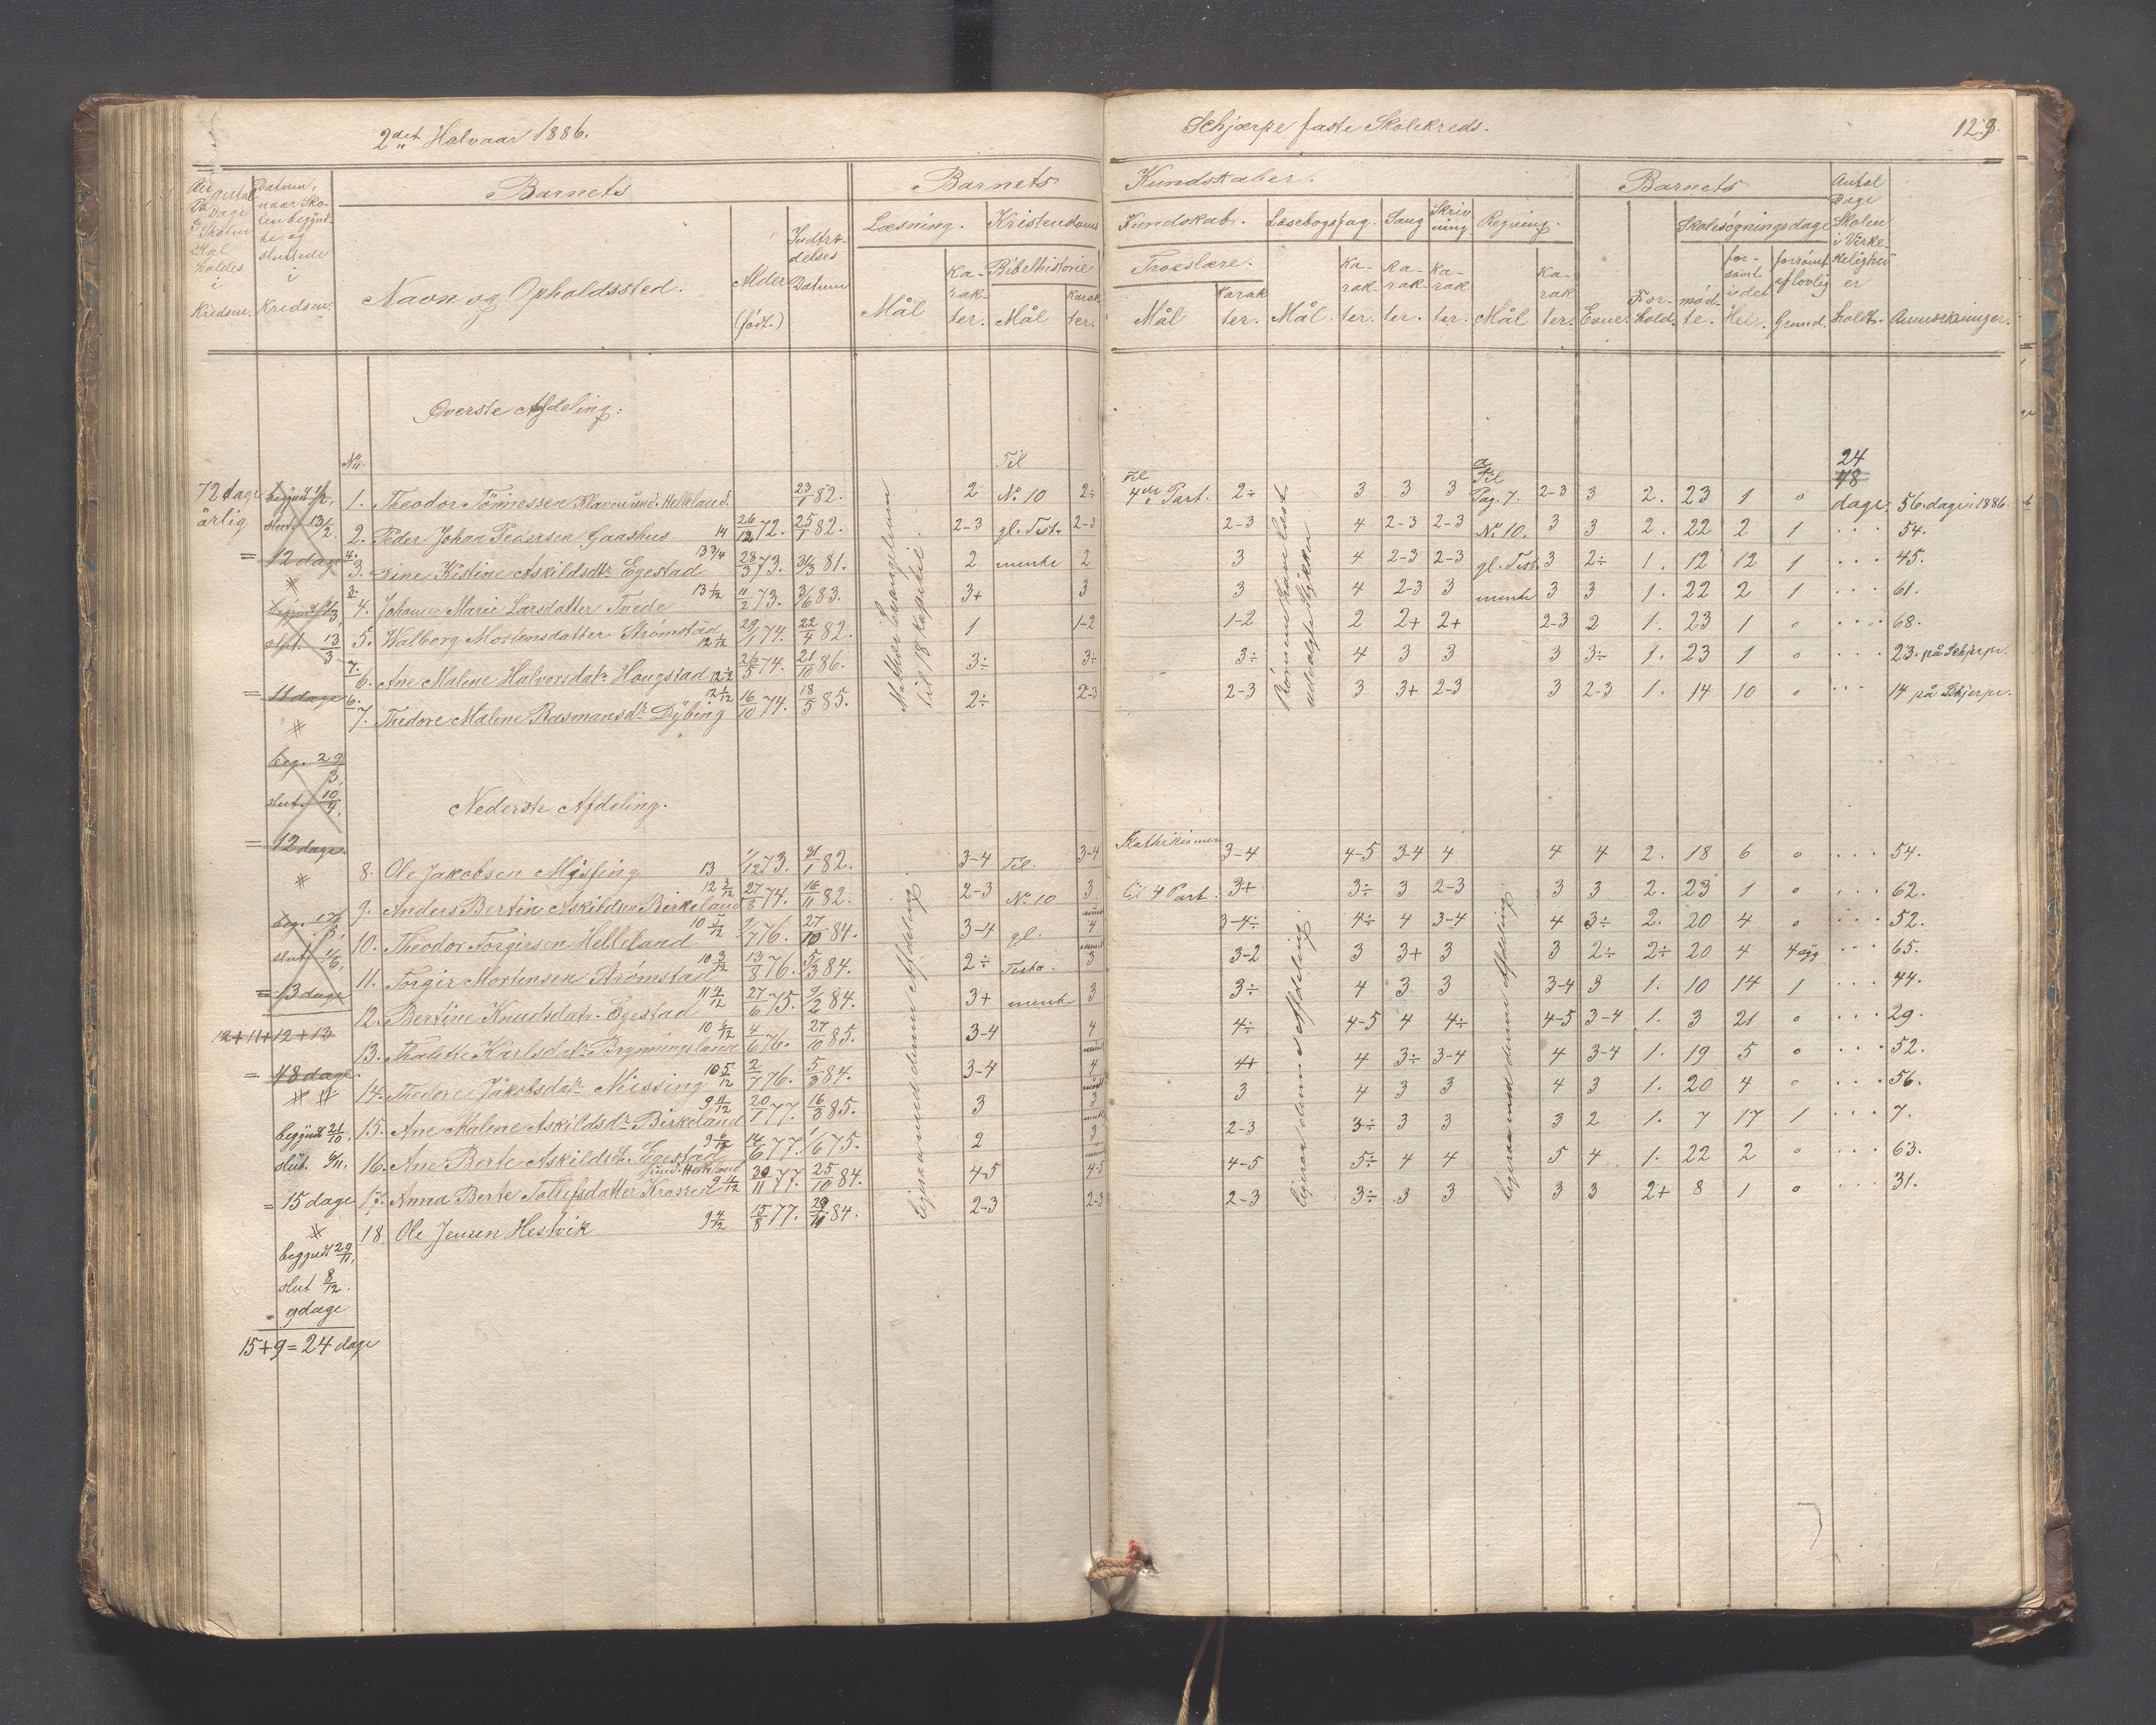 2det Halvaar 1886.
Schjærpe faste Skolekreds.
123.
Barnets
Barnets
Kundskaber.
Barnets
Antal Dage Skolen skal holdes i Kredsen.
Datum, naar Skolen begyndte og sluttede i Kredsen.
Navn og Opholdssted.
Alder (født.)
Indtrædelses Datum
Læsning.
Mål
Karakter.
Kristendoms
Bibelhistorie
Mål
Karakter.
Kundskab.
Troeslære.
Mål
Karakter.
Læsebogsfag.
Mål.
Karakter.
Sang
Karakter.
Skrivning
Karakter.
Regning.
Mål
Karakter.
Evne.
Forhold.
Skolesøgningsdage
mødte.
forsømt i det Hele.
forsømt af lovlig Grund.
Antal Dage Skolen i Virkelighed er holdt.
Anmærkninger.
Øverste Afdeling:
No.
Til
Til
a
Til
24
48
dage.
72 dage årlig
1. Theodor Tönnessen Klaven und. Helleland. 23/1 82. 2 No 10 2÷ 4de Part. 2÷ 3 3 3 Pag. 7. 2-3 3 2. 23 1 0 56 dage i 1886.
2. Peder Johan Pedersen Gaashus. 14 26/12 72. 25/1 82. 2-3 gl. Test. 2-3 2-3 4 2-3 2-3 No 10. 3 3 2. 22 2 1 . . . 54.
4. 3. Sine Kistine Askildsdtr Egestad 13 3/4 28/3 73. 31/3 81. 2 mente 2 3 4 2-3 2-3 gl. Test. 3 2÷ 1. 12 12 1 . . . 45.
2. 4. Johanne Marie Larsdatter Tvede 13 1/2 11/2 73. 3/6 83. 3+ 3 3 4 2-3 3 mente 3 3 1. 22 2 1 . . . 61.
5. Walborg Mortensdatter Strømstad 12 11/12 29/1 74. 22/4 82. 1 1-2 1-2 2 2+ 2+ 2-3 2 1. 23 1 0 . . . 68.
7. 6. Ane Malene Halvorsdatr Hougstad 12 1/2 26/5 74. 21/10 86. 3÷ 3÷ 3÷ 4 3 3 3 3÷ 1. 23 1 0 . . . 23. på Schjerpe.
6. 7. Thedore Malene Rasmansdtr Dybing 12 1/12 16/10 74. 18/5 85. 2÷ 2-3 2-3 3 3+ 2-3 3 2-3 1. 14 10 0 . . . 14 på Schjerpe.
Matthæi Evangelium til 18 kapitel.
Rømmene kun læst udvalgte Stykker
begynd 1/2, slut. 13/2
= 12 dage
begynd 1/3, slut. 13/3
= 11 dage
beg. 29/3, slut. 10/4,
= 12 dage.
slut. 1/6,
= 13 dage
12+11+12+13
= 48 dage.
begynd 21/10, slut. 6/11.
= 15 dage
begyndt 29/11, slut 8/12.
= 9 dage
15+9=24 dage
Nederste Afdeling.
8. Ole Jakobsen Mysfing 13 1/12 73. 31/1 82. 3-4 Til. 3-4 Kathekismen 3-4 4-5 3-4 4 4 4 2. 18 6 0 . . . 54.
9. Anders Bertin Askildsen Birkeland 12 3/12 27/8 74. 16/11 82. 2-3 No 10 3 til 4 Part. 3+ 3÷ 3 2-3 3 3 2. 23 1 0 . . . 62.
10. Theodor Torgersen Helleland 10 5/12 9/7 76. 27/10 84. 3-4 gl. 4 3-4÷ 4÷ 4 3-4 4 3÷ 2. 20 4 0 . . . 52.
11. Torgir Mortensen Strømstad 10 3/12 13/8 76. 5/3 84. 2÷ Testa- 3 3-2 3 3+ 3 3 2÷ 2÷ 20 4 4 syg . . . 65.
12. Bertine Knudsdatr. Egestad 11 4/12 27/6 75. 9/2 84. 3+ mente 3 3÷ 4 3 3 3-4 3 1. 10 14 1 . . . 44.
13. Thalette Karlsdatr Brynningsland 10 6/12 4/6 76. 27/10 85. 3-4 4 4÷ 4-5 4 4÷ 4-5 3-4 1. 3 21 0 . . . 29.
14. Thedore Jakobsdatr Missing 10 5/12 2/7 76. 5/3 84. 3-4 4 4+ 4 3÷ 3-4 4 3-4 1. 19 5 0 . . . 52.
15. Ane Malene Askildsdtr Birkeland 9 11/12 20/1 77. 16/3 85. 3 3 3 4 3 3 4 3 1. 20 4 0 . . . 56.
16. Ane Berte Askildsdt. Egestad 9 6/12 14/6 77. 1/6 75. 2 3 2-3 3÷ 3 3 3 2 1. 7 17 1 . . . 7.
17. Anna Berte Tollefsdatter Krossen und. Helleland 9 1/12 30/11 77. 25/10 84. 4-5 4-5 4-5 5÷ 4 4 5 4 1. 22 2 0 . . . 63.
18. Ole Jensen Hestvik 9 4/12 15/8 77. 29/11 84. 2-3 2-3 2-3 3÷ 3 3 3 3 2+ 8 1 0 . . . 31.
ligesaa med denne Afdeling.
ligesaa denne Afdeling.
ligesaa med denne Afdeling.